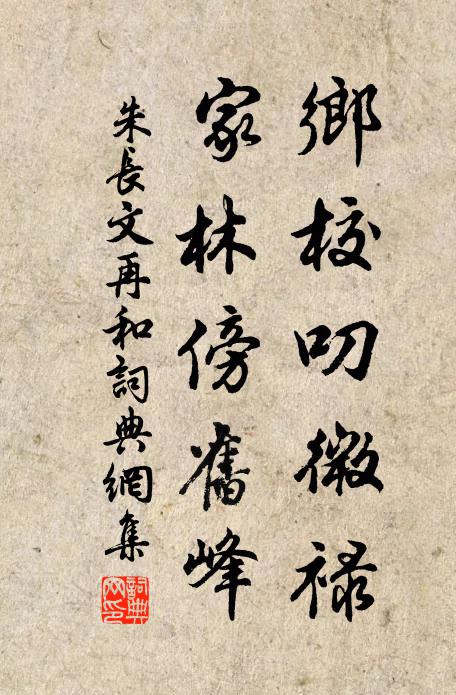 鄉校叨微祿
家林傍舊峰
朱長文再和詞典網集
詞典網印